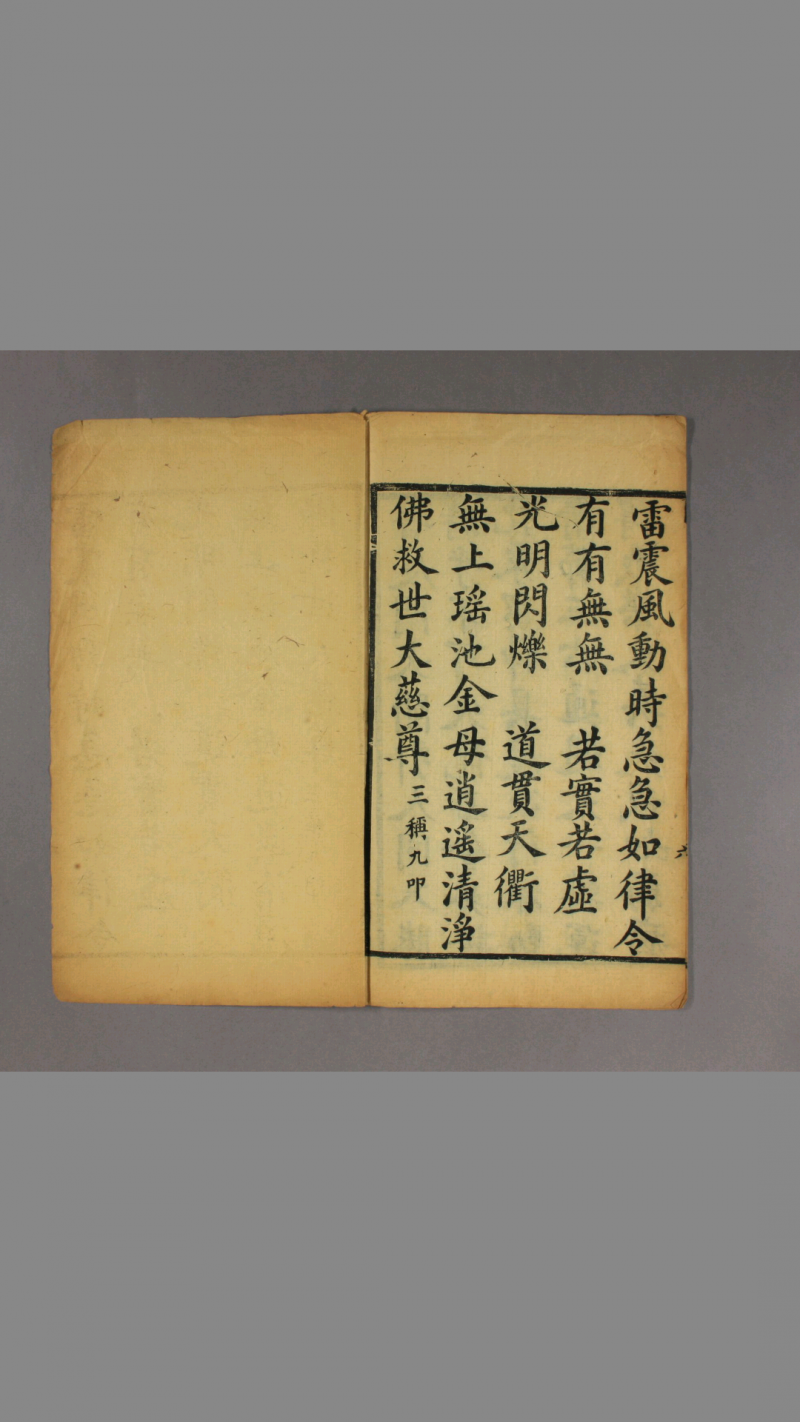 雷震風動時急急如律令
有有無無　若實若虛
光明閃爍　道貫天衢
無上瑤池金母逍遙清淨
佛救世大慈尊三稱九叩
六